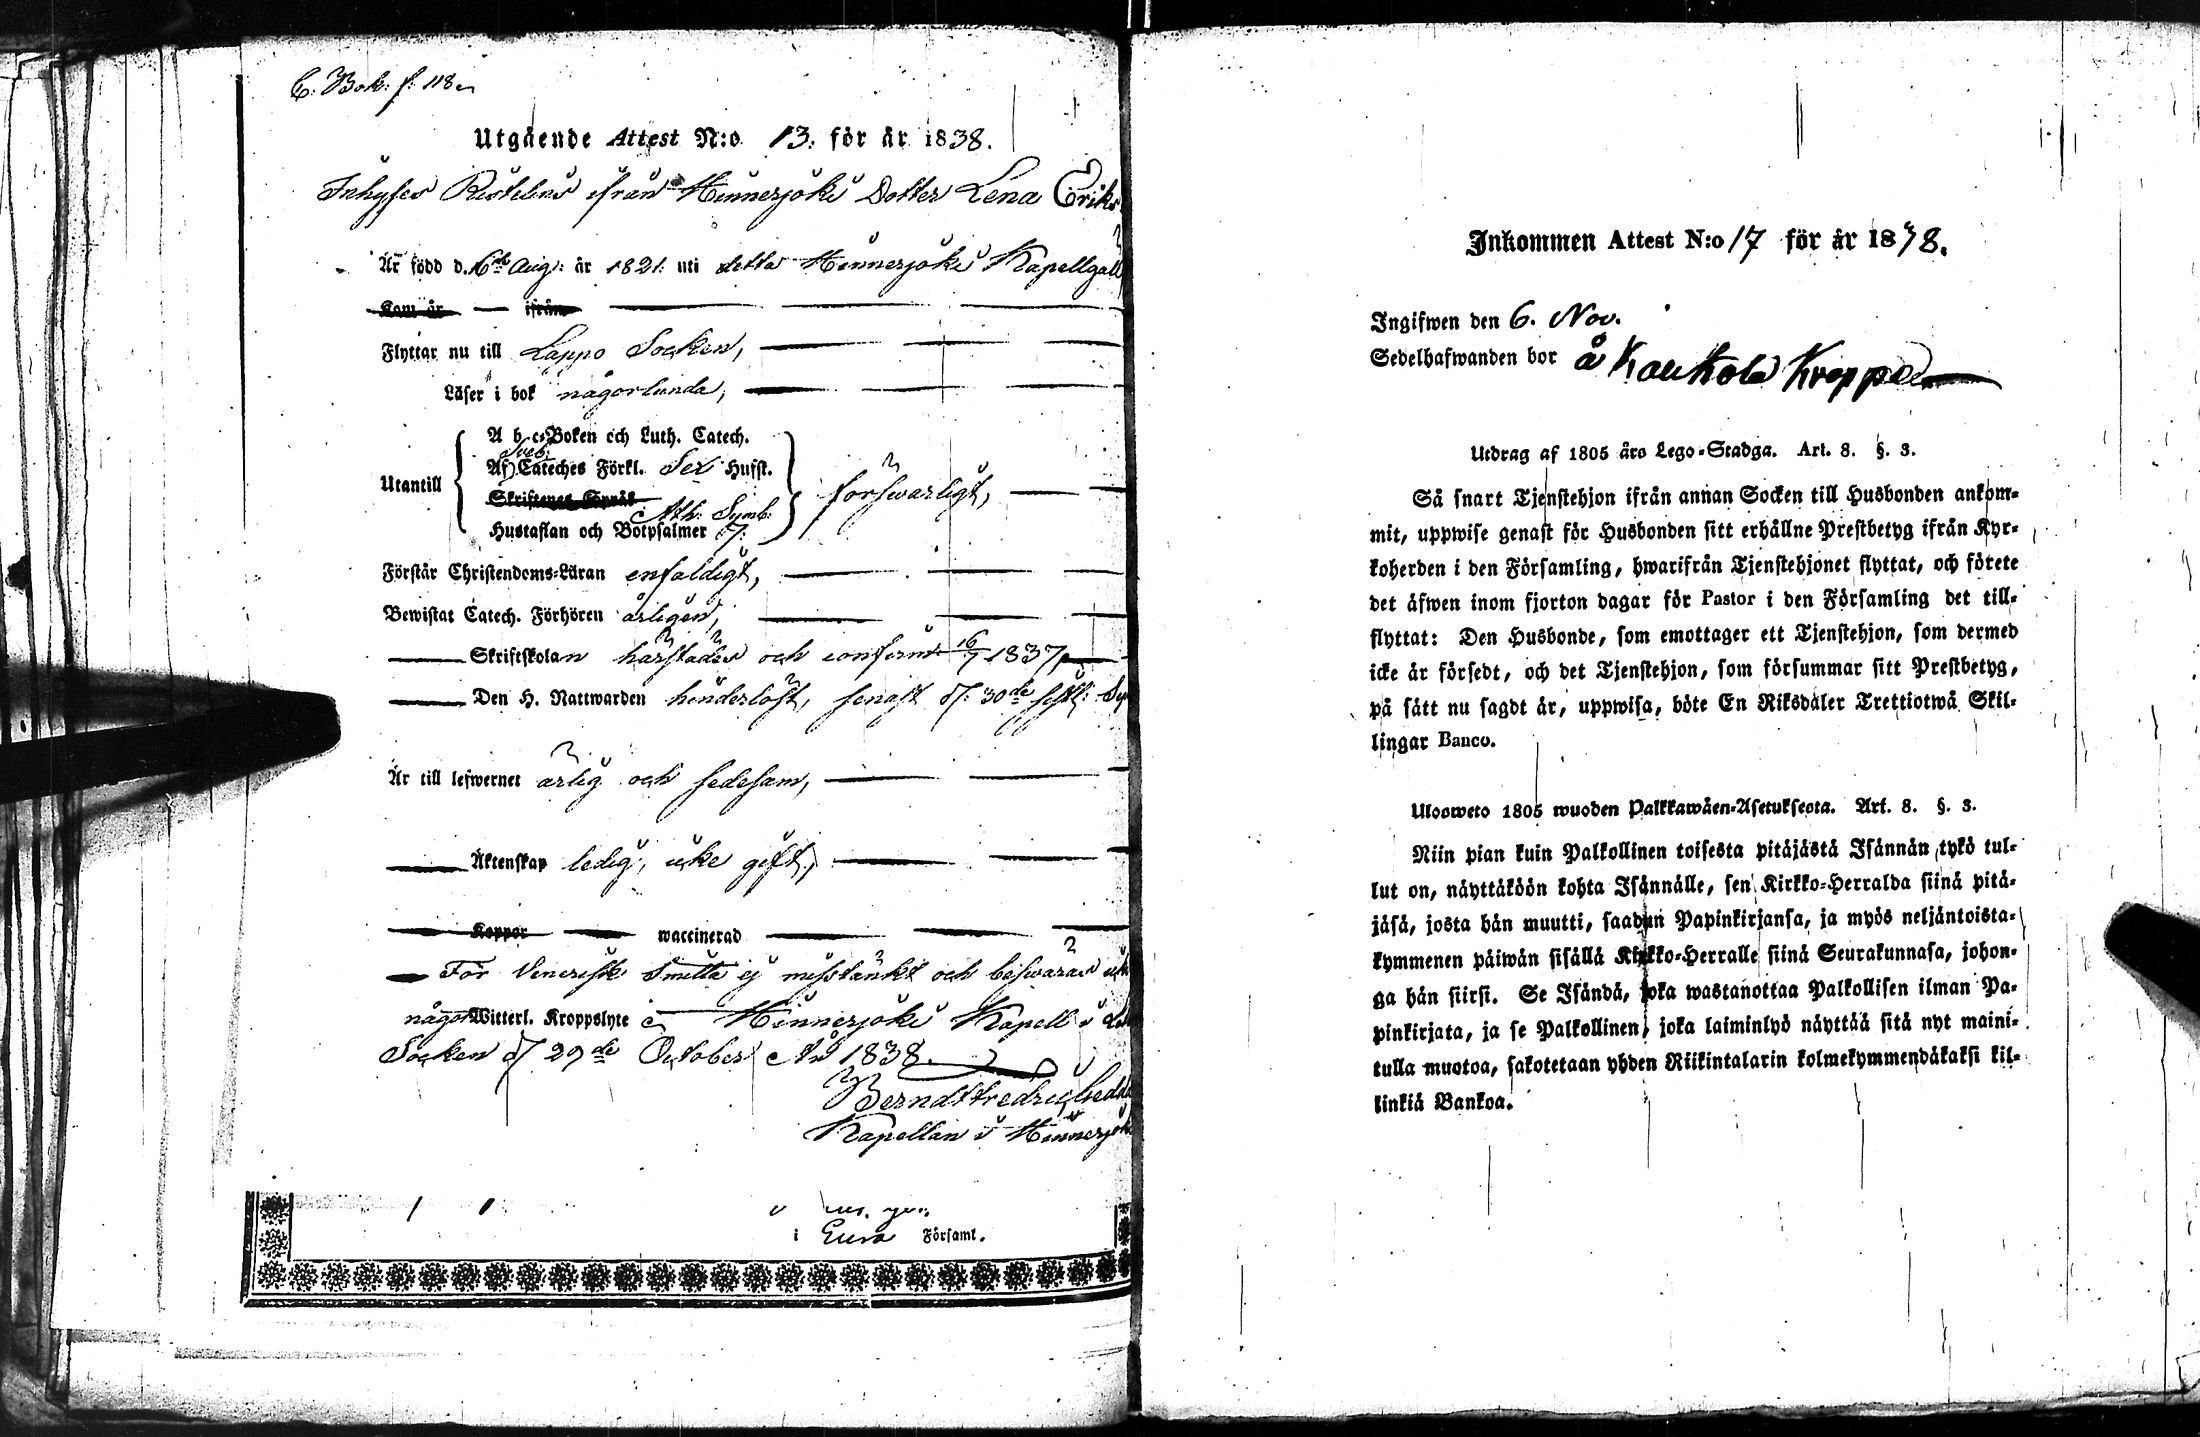 C. Bok. f. 118
Utgående Attest N:o 13. för år 1838.
Inhyses Ristelius ifrån Hinnerjoki Dotter Lena Eriks
Är född d. 6te Aug: år 1821. uti detta Hinnerjoki Kapellgäll
Kom år — ifrån
Flyttar nu till Lappo Socken,
Läser i bok någorlunda,
A b c-Boken och Luth. Catech.
Sveb.
Af Cateches Förkl. Sex Husst.
Utantill
försvarligt,
Skriftenes Språk
Ath: Symb:
Hustaflan och Botpsalmer 7.
Förstår Christendoms-Läran enfaldigt,
Bewistat Catech. Förhören årligen,
Skriftskolan härstädes och confirm: 16/7 1837
Den H. Nattwarden hinderlöst, senast d. 30de sistl:
Är till lefwernet ärlig och sedesam,
Äktenskap ledig, icke gift,
Koppor waccinerad
För Venerisk Smitta ej misstänkt och besväras
någon Witterl. Kroppslyte Hinnerjoki Kapell i
Socken d. 29de October År 1838.
Berndt Fredric
Kapellan i Hinnerjoki
i Eura Församl.
Inkommen Attest N:o 17 för år 1838.
Ingifwen den 6. Nov.
Sedelhafwanden bor å Kaukola
Utdrag af 1805 års Lego-Stadga. Art. 8. §. 3.
Så snart Tjenstehjon ifrån annan Socken till Husbonden ankom-
mit, uppwise genast för Husbonden sitt erhållne Prestbetyg ifrån Kyr-
koherden i den Församling, hwarifrån Tjenstehjonet flyttat, och förete
det äfwen inom fjorton dagar för Pastor i den Församling det till-
flyttat: Den Husbonde, som emottager ett Tjenstehjon, som dermed
icke är försedt, och det Tjenstehjon, som försummar sitt Prestbetyg,
på sätt nu sagdt är, uppwisa, böte En Riksdaler Trettiotwå Skil-
lingar Banco.
Ulosweto 1805 wuoden Palkkawäen-Asetuksesta. Art. 8. §. 3.
Niin pian kuin Palkollinen toisesta pitäjästä Isännän tykö tul-
lut on, näyttäköön kohta Isännälle, sen Kirkko-Herralda siinä pitä-
jäsä, josta hän muutti, saadun Papinkirjansa, ja myös neljäntoista-
kymmenen päiwän sisällä Kirkko-Herralle siinä Seurakunnasa, johon-
ga hän siirsi. Se Isändä, joka wastanottaa Palkollisen ilman Pa-
pinkirjata, ja se Palkollinen, joka laiminlyö näyttää sitä nyt maini-
tulla muotoa, sakotetaan yhden Riikintalarin kolmekymmendäkaksi kil-
linkiä Bankoa.